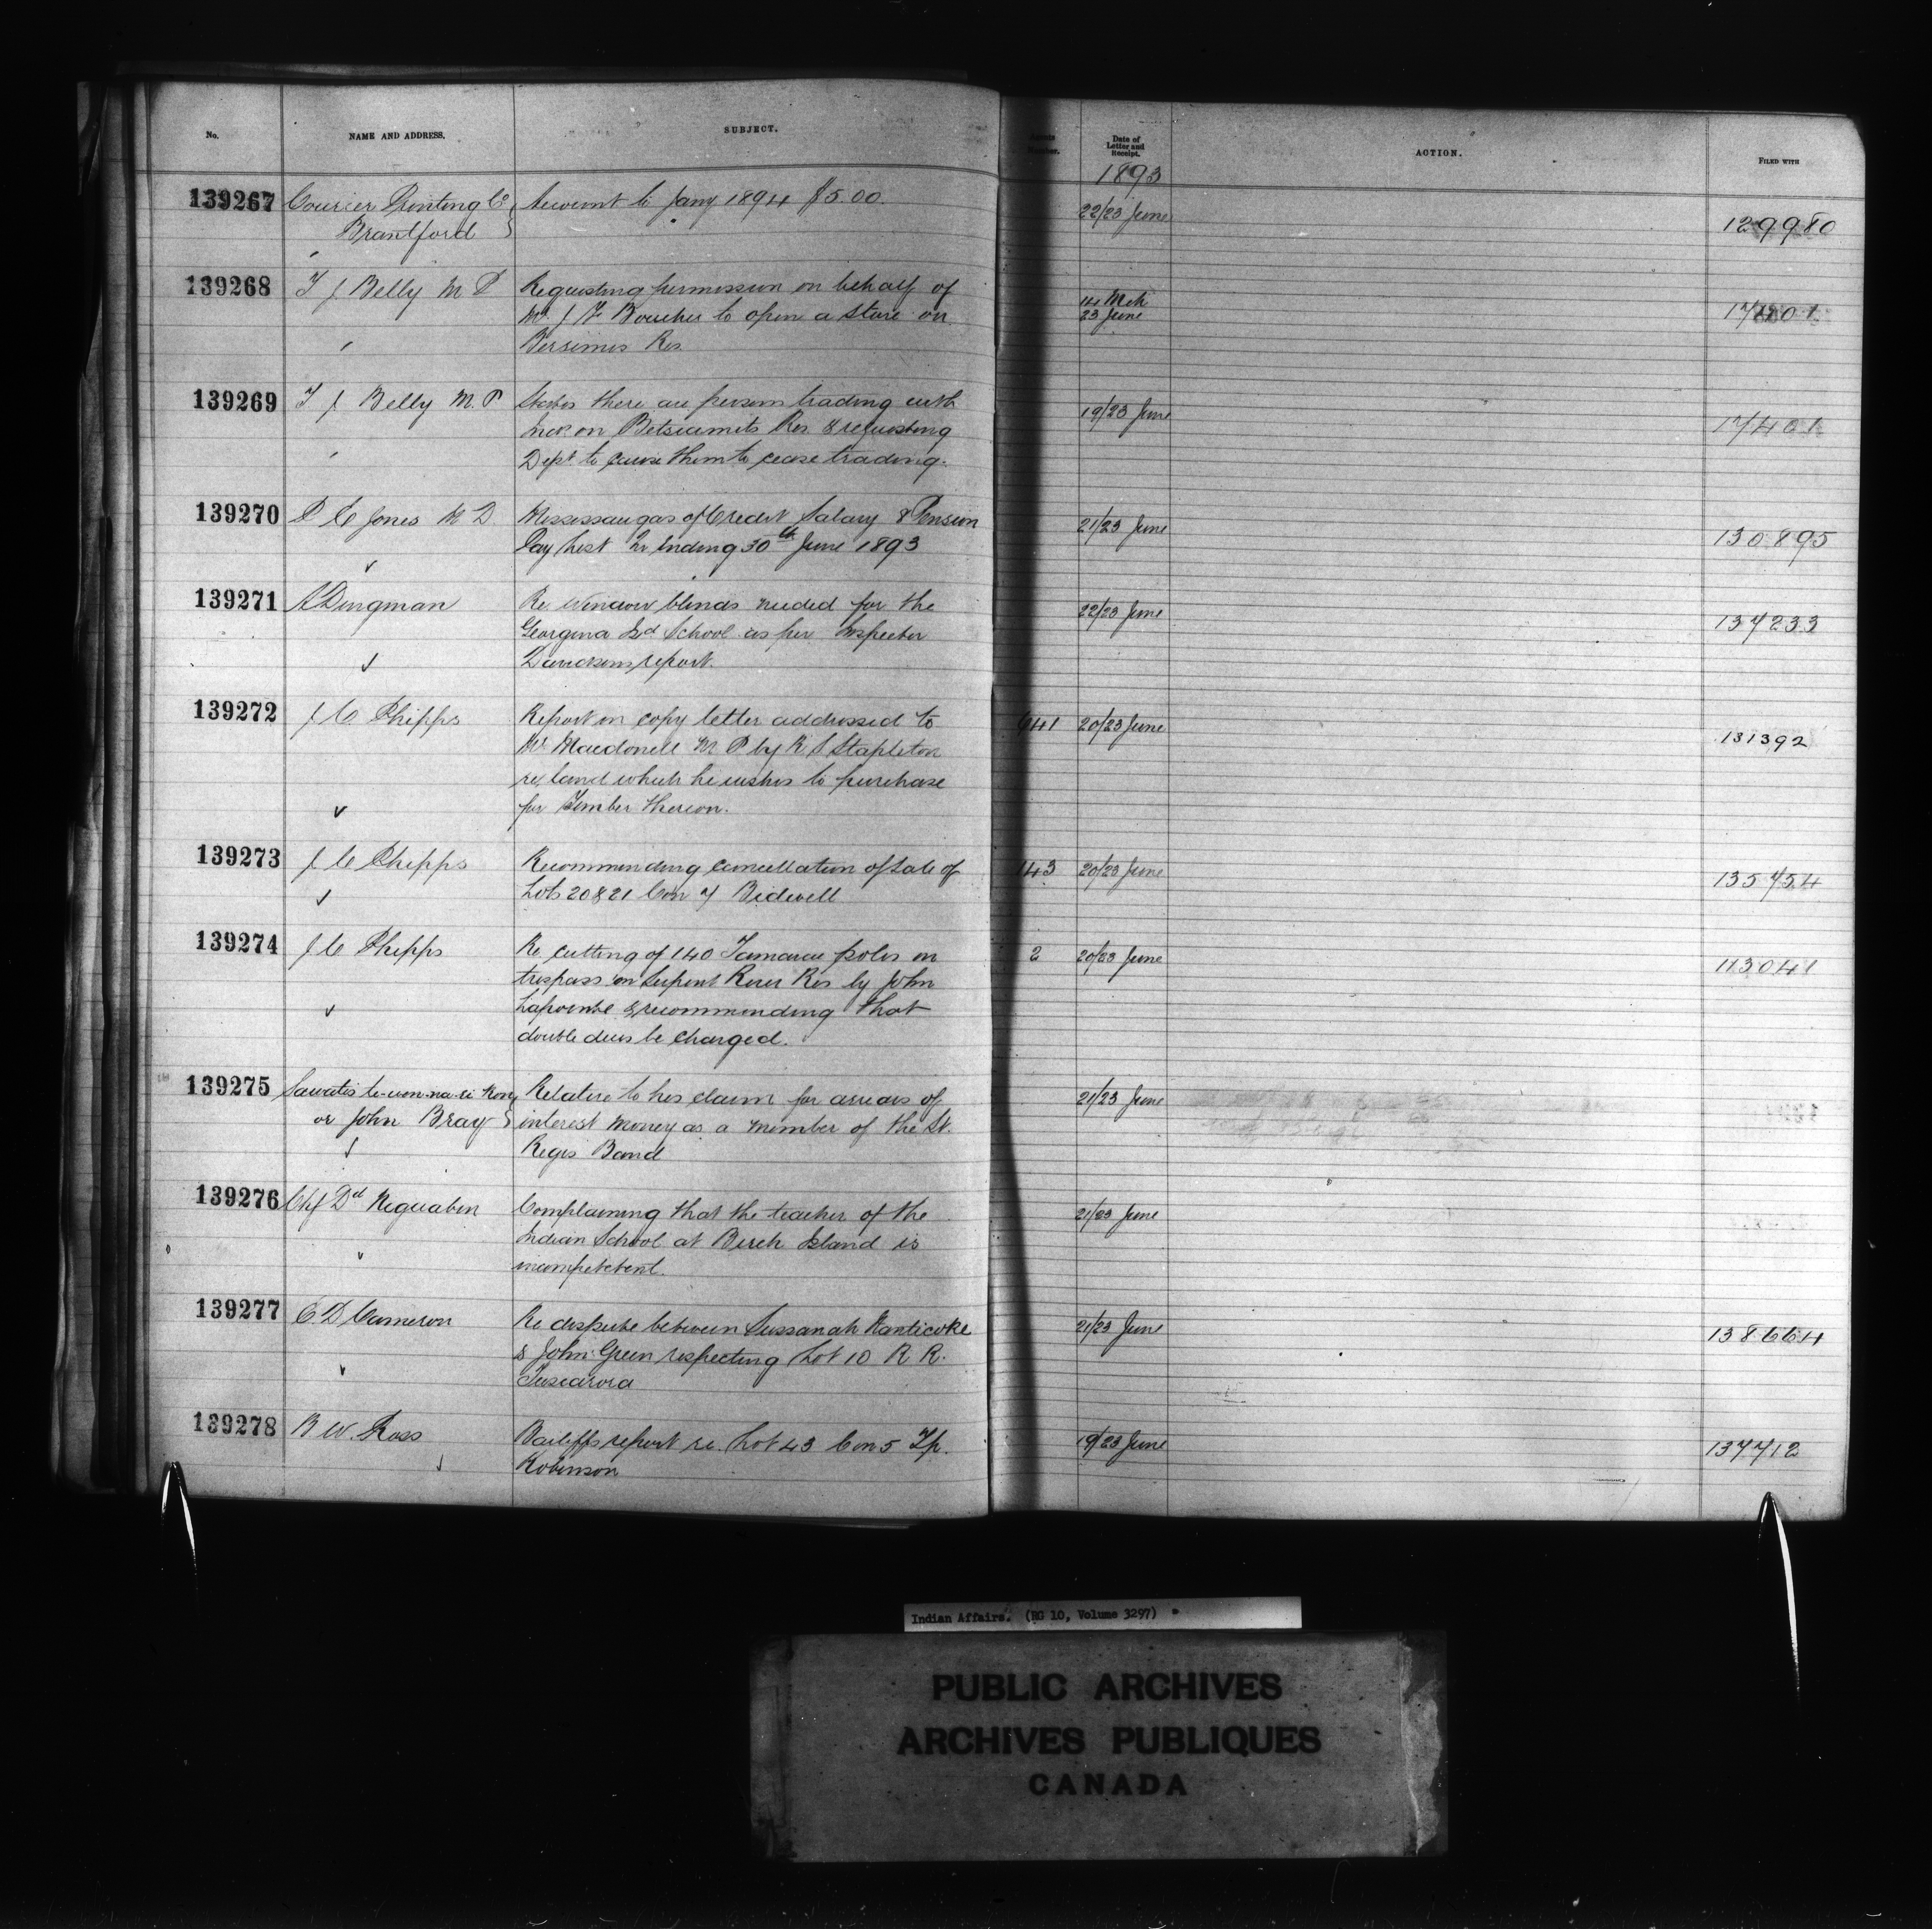 No. NAME AND ADDRESS. SUBJECT. Agents Number. Date of Letter and Receipt. ACTION. FILED WITH
1893
139267 Courier Printing Co Account to Jany 1894 $5.00. 22/23 June 129980
Brantford
139268 T J Belly M P Requesting permission on behalf of 14 Mch
Mr. J F Boucher to open a store on 23 June
Bersimis Res.
139269 T J Belly M.P States there are persons trading with 19/23 June 17401
Inds. on Betsiamits Res. & requesting
Dept to cause them to cease trading.
139270 P E Jones M D Mississaugas of Credit Salary & Pension 21/23 June 130895
Pay List Qr ending 30th June 1893
139271 A Dingman Re window blinds needed for the 22/23 June 137233
Georgina Isd School as per Inspector
Davidsons report.
139272 J C Phipps Report on copy letter addressed to 641 20/23 June 131392
Mr. Macdonell M P by R S Stapleton
re. land which he wishes to purchase
for Timber thereon.
139273 J C Phipps Recommending cancellation of sale of 143 20/23 June 135754
Lots 20 & 21 Con 7 Bidwell
139274 J C Phipps Re cutting of 140 Tamarac poles in 2 20/23 June 113041
trespass on Serpent River Res by John
Lapointe & recommending that
double dues be charged.
139275 Sawatis te-wen-na-re Relative to his claim for arrears of 21/23 June
or John Bray interest money as a member of the St.
Regis Band
139276 Chf Dd Neguabin Complaining that the teacher of the 21/23 June
Indian School at Birch Island is
incompetetent.
139277 E D Cameron Re dispute between Sussanah Nanticoke 21/23 June 138664
& John Green respecting Lot 10 R. R.
Tuscarora
139278 B. W. Ross Bailiffs report re. Lot 43 Con 5 Tp. 19/23 June 137712
Robinson
Indian Affairs. (RG 10, Volume 3297)
PUBLIC ARCHIVES
ARCHIVES PUBLIQUES
CANADA